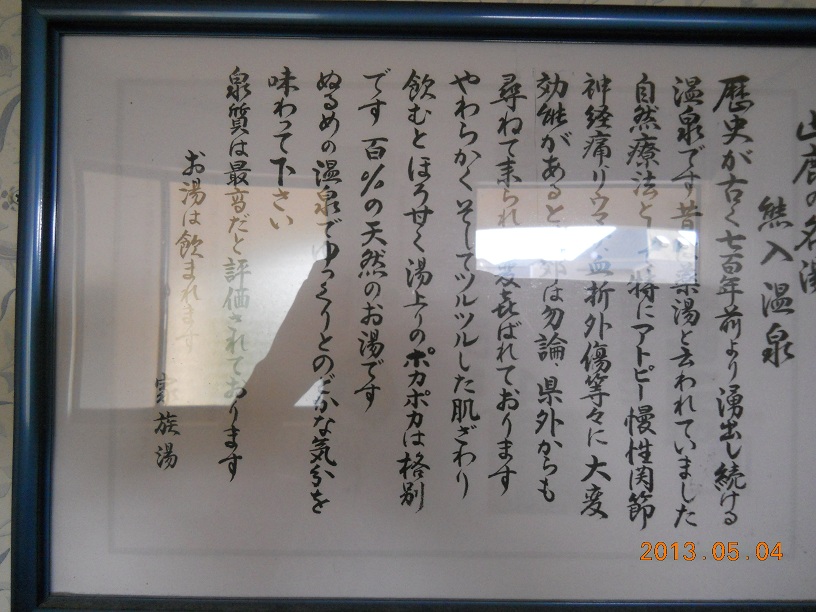 山鹿の名湯
熊入温泉
歴史が古く七百年前より湧出し続ける
温泉です昔は薬湯と云われていました
自然療法として特にアトピー慢性関節
神経痛リウマ 骨折外傷等々に大変
効能があると は勿論、県外からも
尋ねて来られ 喜ばれております
やわらかくそしてツルツルした肌ざわり
飲むとほろ甘く湯上りのポカポカは格別
です 百%の天然のお湯です
ぬるめの温泉でゆっくりとのどかな気分を
味わって下さい
泉質は最高だと評価されております
お湯は飲まれます
家族湯
2013.05.04